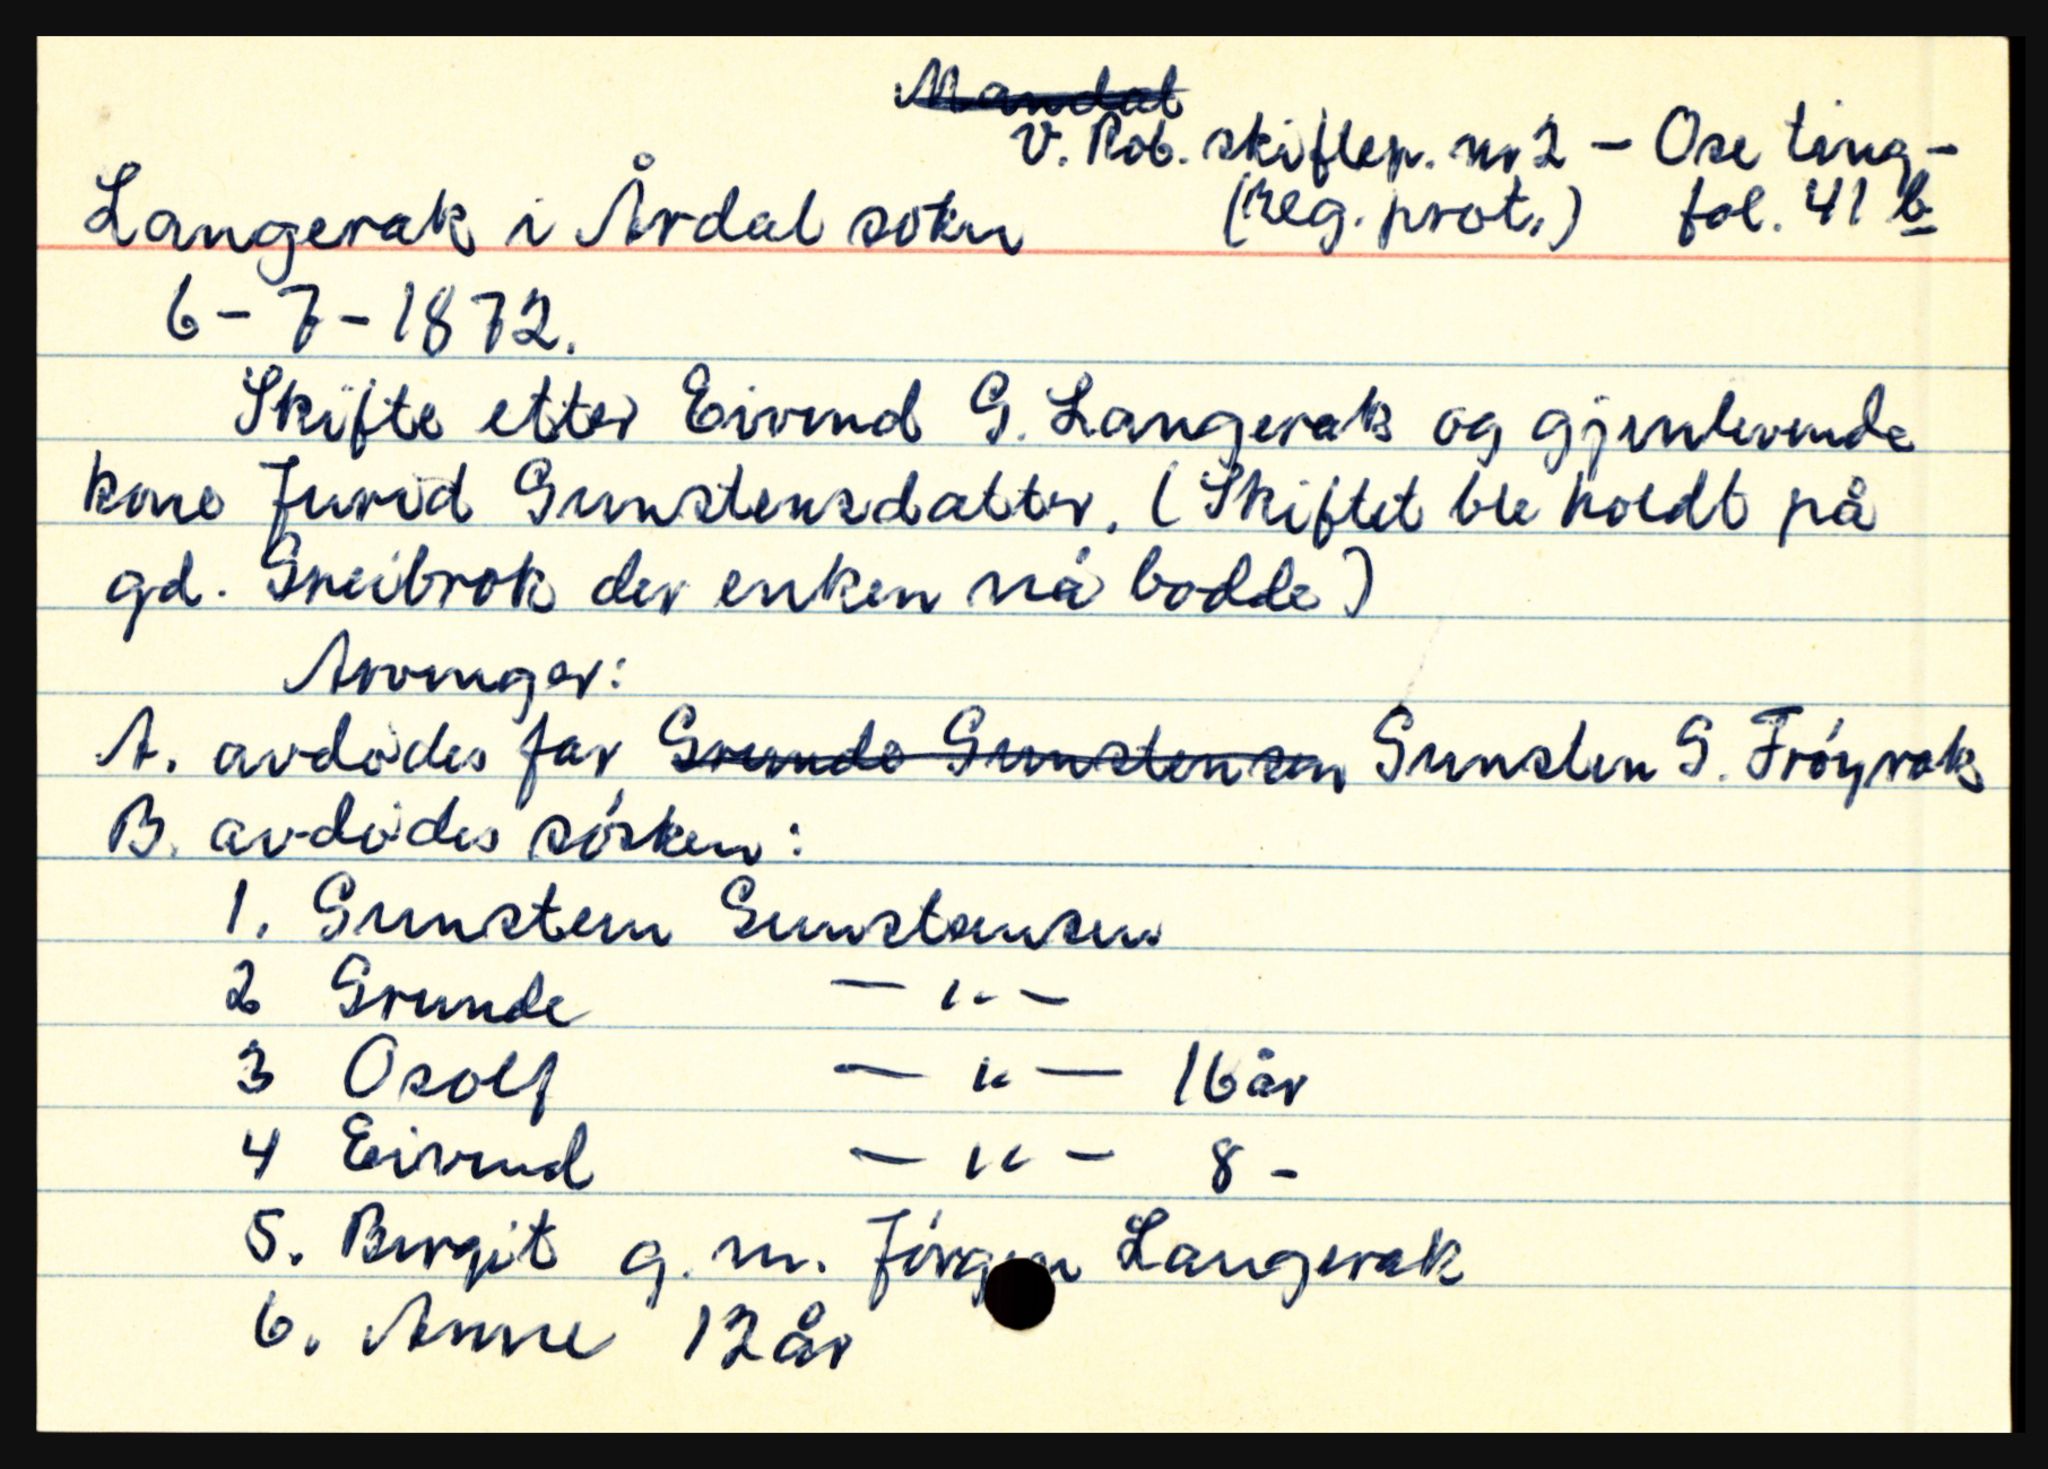 Mandal
V. Rob. skiftep. nr 2 – Ose ting-
Langerak i Årdal sokn (Reg. prot.) fol. 41 b
6-7-1872.
Skifte etter Eivind G. Langerak og gjenlevende
kone Jurid Gunstensdatter. (Skiftet ble holdt på
gd. Greibrok der enken nå bodde)
Arvinger:
A. avdødes far Grunde Gunstensen Gunsten G. Frøyrak
B. avdødes søsken:
1. Gunstein Gunstensen
2 Grunde — " —
3 Osolf — " — 16 år
4 Eivind — " — 8 -
5. Birgit g. m. Jørgen Langerak
6. Anne 12 år